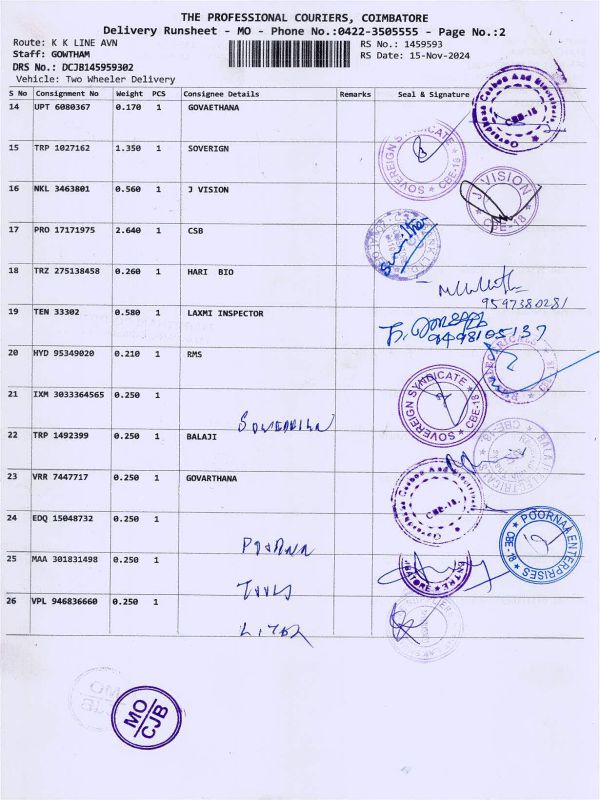 THE PROFESSIONAL COURIERS, COIMBATORE
Delivery Runsheet - MO - Phone No.:0422-3505555 - Page No.:2
Route: K K LINE AVN
RS No.: 1459593
Staff: GOWTHAM
RS Date: 15-Nov-2024
DRS No.: DCJB145959302
Vehicle: Two Wheeler Delivery
S No Consignment No Weight PCS Consignee Details Remarks Seal & Signature
14 UPT 6080367 0.170 1 GOVAETHANA
CBE-18
15 TRP 1027162 1.350 1 SOVERIGN
SOVEREIGN SYNDICATE CBE-18
16 NKL 3463801 0.560 1 J VISION
J VISION CBE-18
17 PRO 17171975 2.640 1 CSB
18 TRZ 275138458 0.260 1 HARI BIO
9597380281
19 TEN 33302 0.580 1 LAXMI INSPECTOR
9498105137
20 HYD 95349020 0.210 1 RMS
21 IXM 3033364565 0.250 1
SOVEREIGN SYNDICATE CBE-18
22 TRP 1492399 0.250 1 BALAJI
23 VRR 7447717 0.250 1 GOVARTHANA
CBE-18
24 EDQ 15048732 0.250 1
POORNAA ENTERPRISES CBE-18
25 MAA 301831498 0.250 1
26 VPL 946836660 0.250 1
MO
CJB